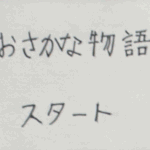 おさかな物語
スタート